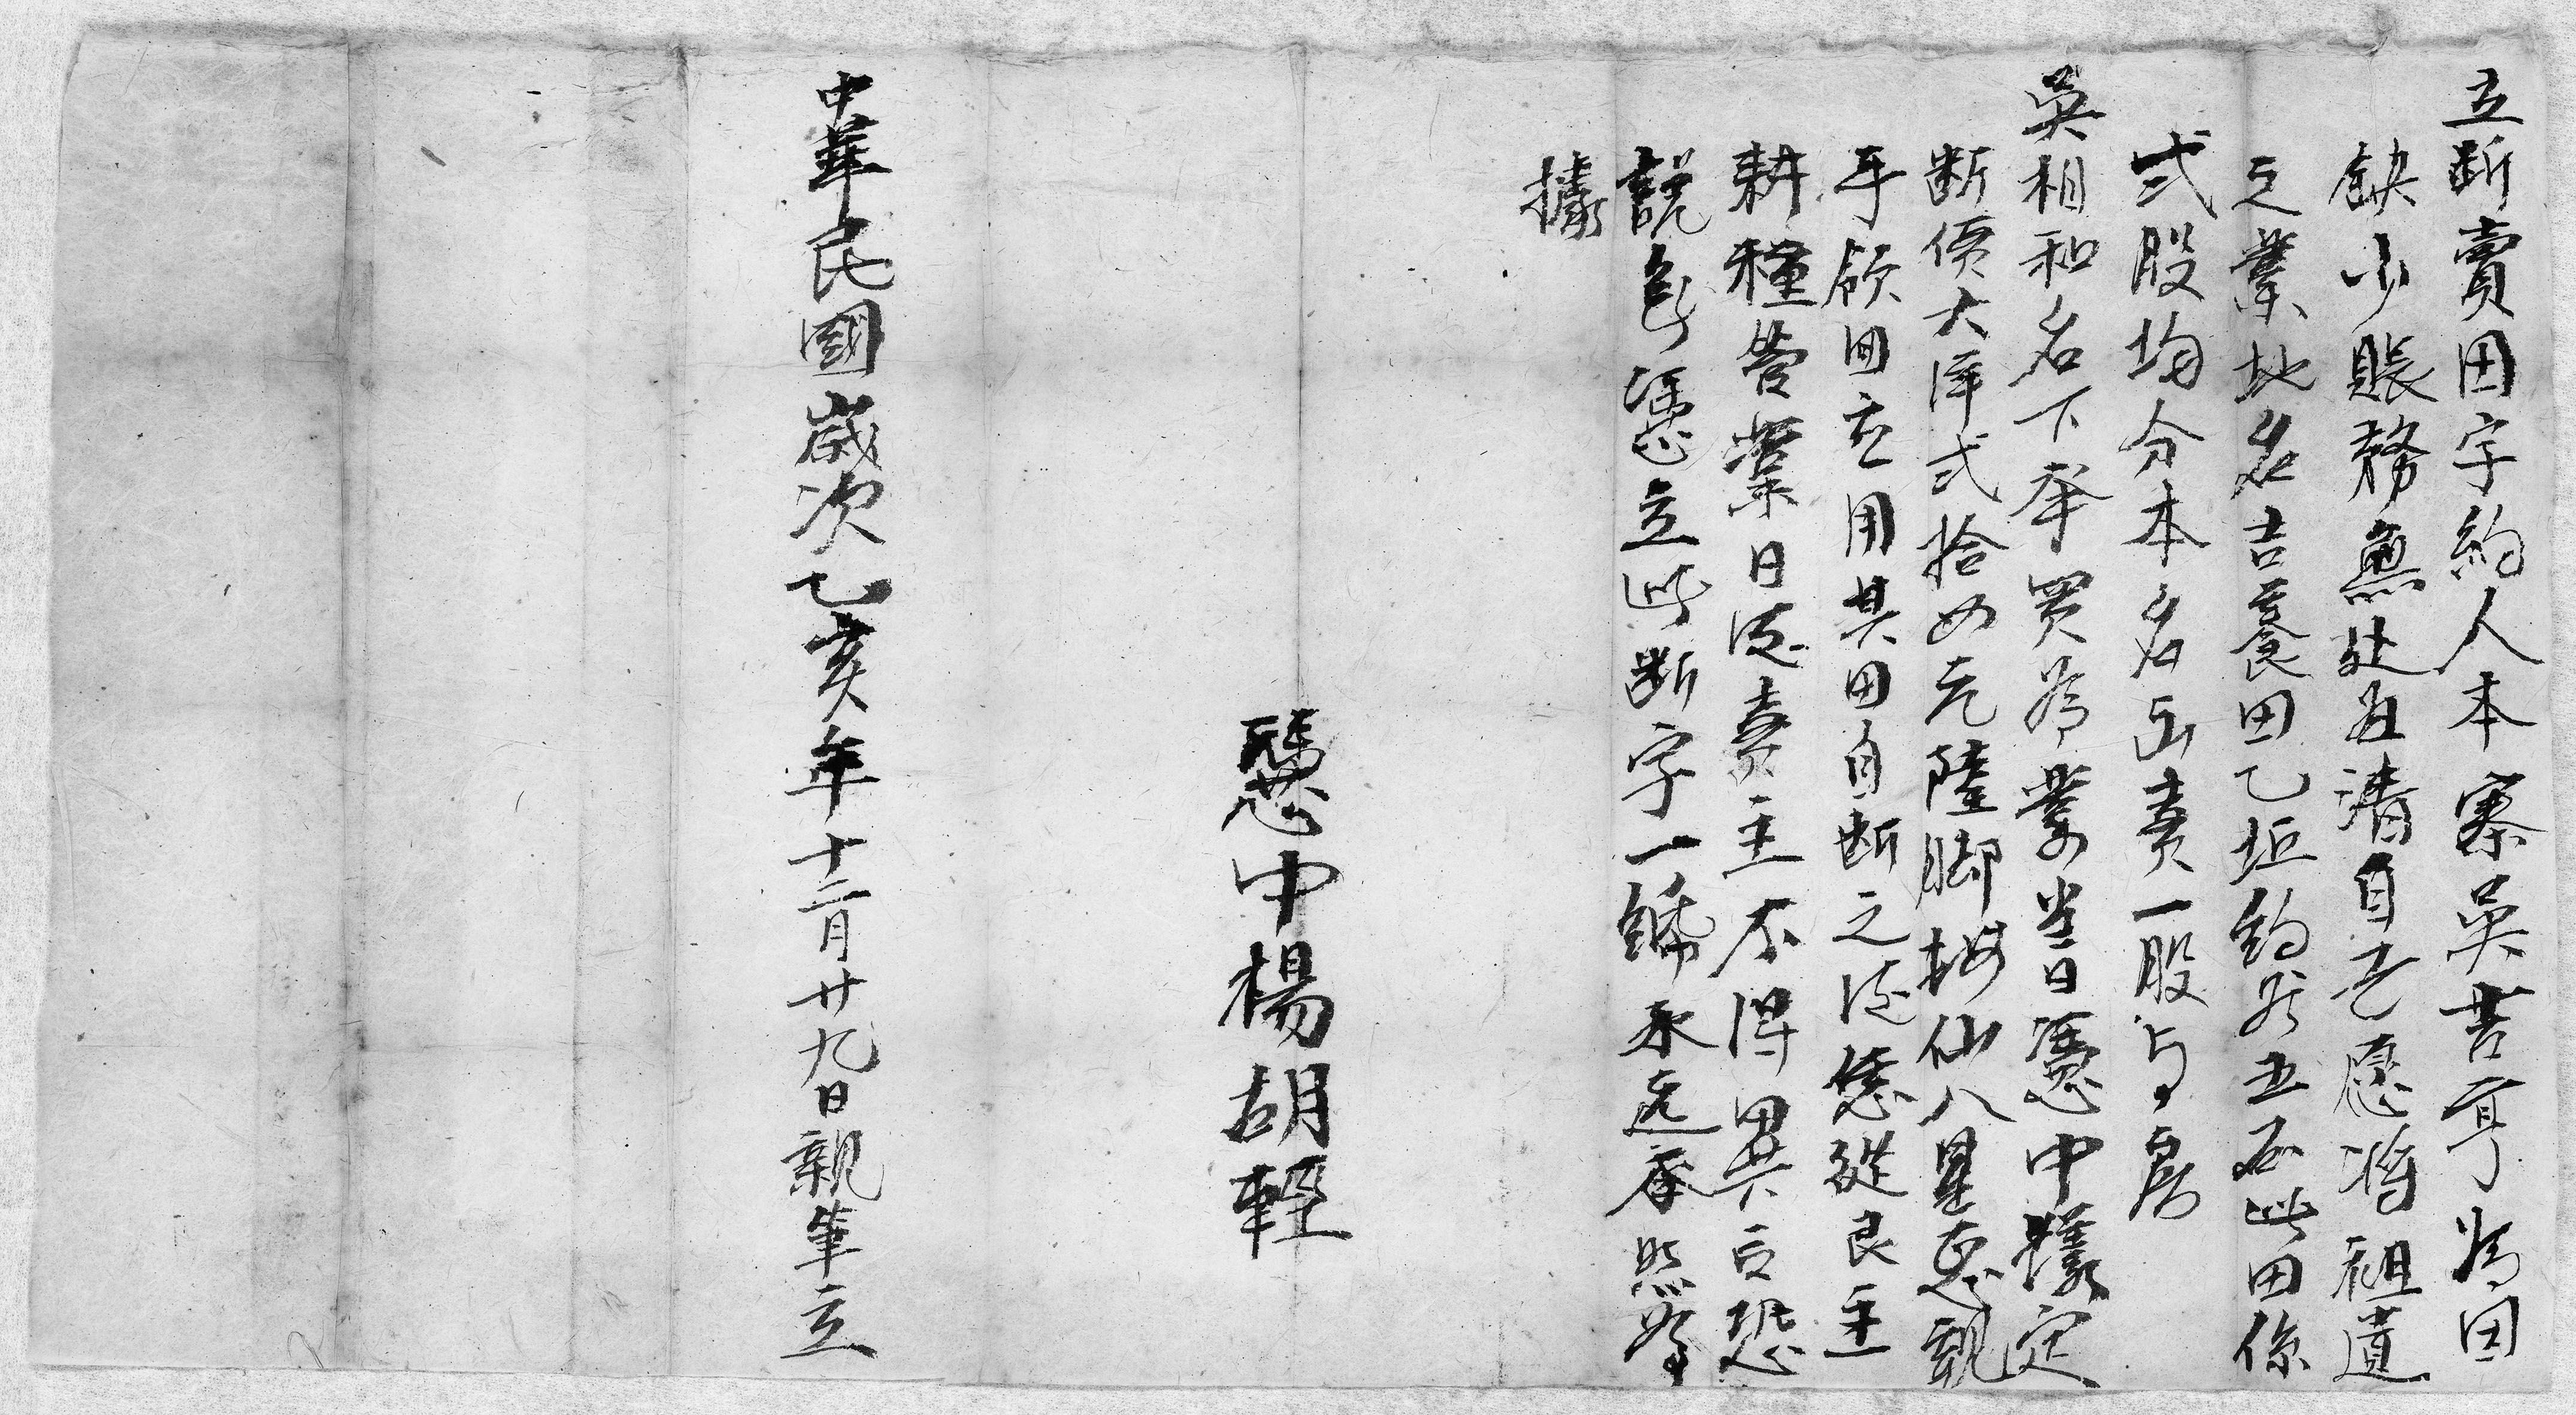 立断賣田字約人本寨吳昔亨為因
缺少賬務無处出清自己愿將祖遺
之業地名吉養田乙坵約谷五石此田係
弍股均分本名出賣一股与房
吳相和名下承買為業当日憑中議定
断價大洋弍拾四元陸脚按仙八星恵親
手領回应用其田自断之後恁從良主
耕種管業日後賣主不得異言恐
說無憑立此断字一紙永远存照為
據
憑中楊胡輕
中華民國歲次乙亥年十二月廿九日親筆立